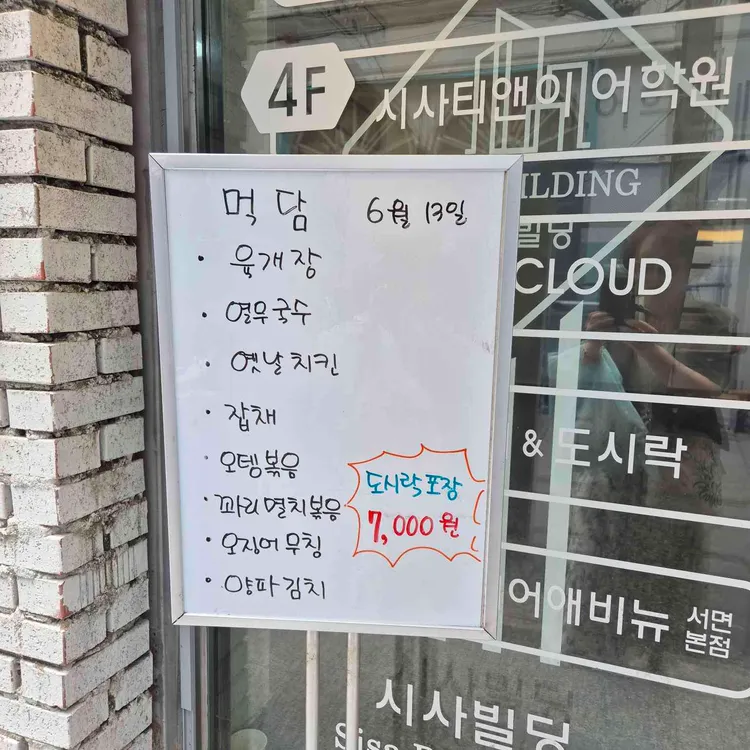 4F 시사티앤이 어학원
먹담 6월 13일
· 육개장
· 열무국수
· 옛날치킨
· 잡채
· 오뎅볶음
· 꽈리멸치볶음
· 오징어무침
· 양파김치
도시락포장
7,000원
ILDING
빌딩
CLOUD
& 도시락
어애비뉴 서면
본점
시사빌딩